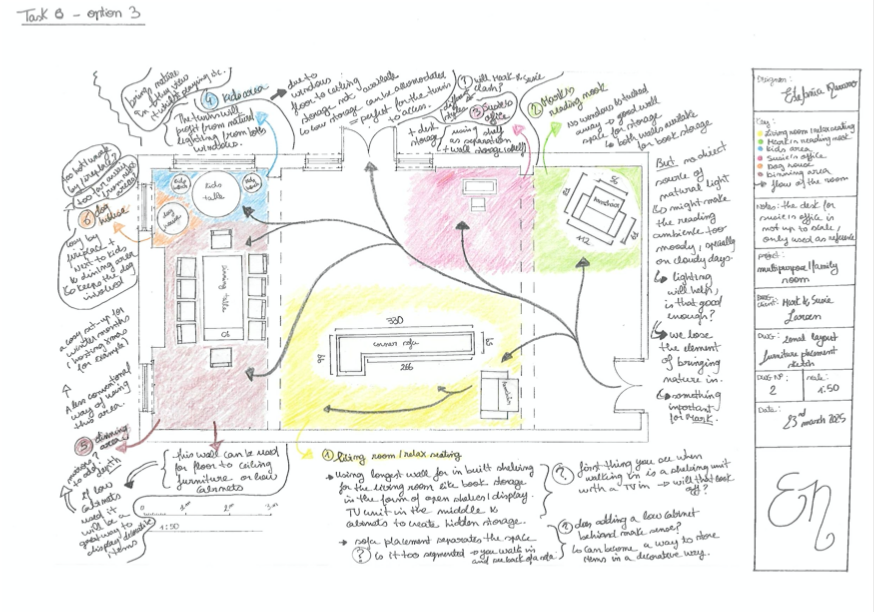 Task 8 - option 3
④ kids area
The twins will
profit from natural
lighting from both
windows.
due to
windows
floor to ceiling
storage not available
↳ low storage can be accommodated
= perfect for the twins
to access.
① will Mark & Susie
clash?
③ Susie's
office
+ desk
storage
using shelf
as separation
+ wall storage
② Mark's
reading nook
No window & tucked
away → good wall
space for storage
↳ both walls available
for book storage
But no direct
source of
natural light
↳ might make
the reading
ambience too
moody, specially
on cloudy days.
↳ lighting
will help,
is that good
enough?
↳ we lose
the element
of bringing
nature in.
↳ something
important
for Mark.
⑥ dog
house
cosy by
fireplace +
next to kids
& dining area
↳ keeps the dog
involved
kids
table
dog
house
dining table
330
corner sofa
266
a cosy set-up for
winter months
(hosting xmas
for example)
A less conventional
way of using
this area
⑤ dinning
area
this wall can be used
for floor to ceiling
furniture or low
cabinets
if low
cabinets
used it
will be a
great way to
display decorative
items
1:50
① living room / relax seating
→ using longest wall for in built shelving
for the living room like book storage
in the form of open shelves / display.
TV unit in the middle &
cabinets to create hidden storage.
→ sofa placement separates the space
? Is it too segmented → you walk in
and see back of a sofa.
? first thing you see when
walking in is a shelving unit
with a TV in → will that look
off?
? does adding a low cabinet
behind make sense?
↳ can become a way to store
items in a decorative way.
Designer:
Key:
Living room/relax seating
Mark in reading nook
kids area
Susie in office
Dog house
Dinning area
→ flow of the room
Notes: the desk for
Susie in office is
not up to scale,
only used as reference
Project:
multipurpose/family
room
Client: Mark & Susie
Larsen
DWG: zonal layout
furniture placement
sketch
DWG Nº:
2
scale:
1:50
Date:
23rd
march 2025